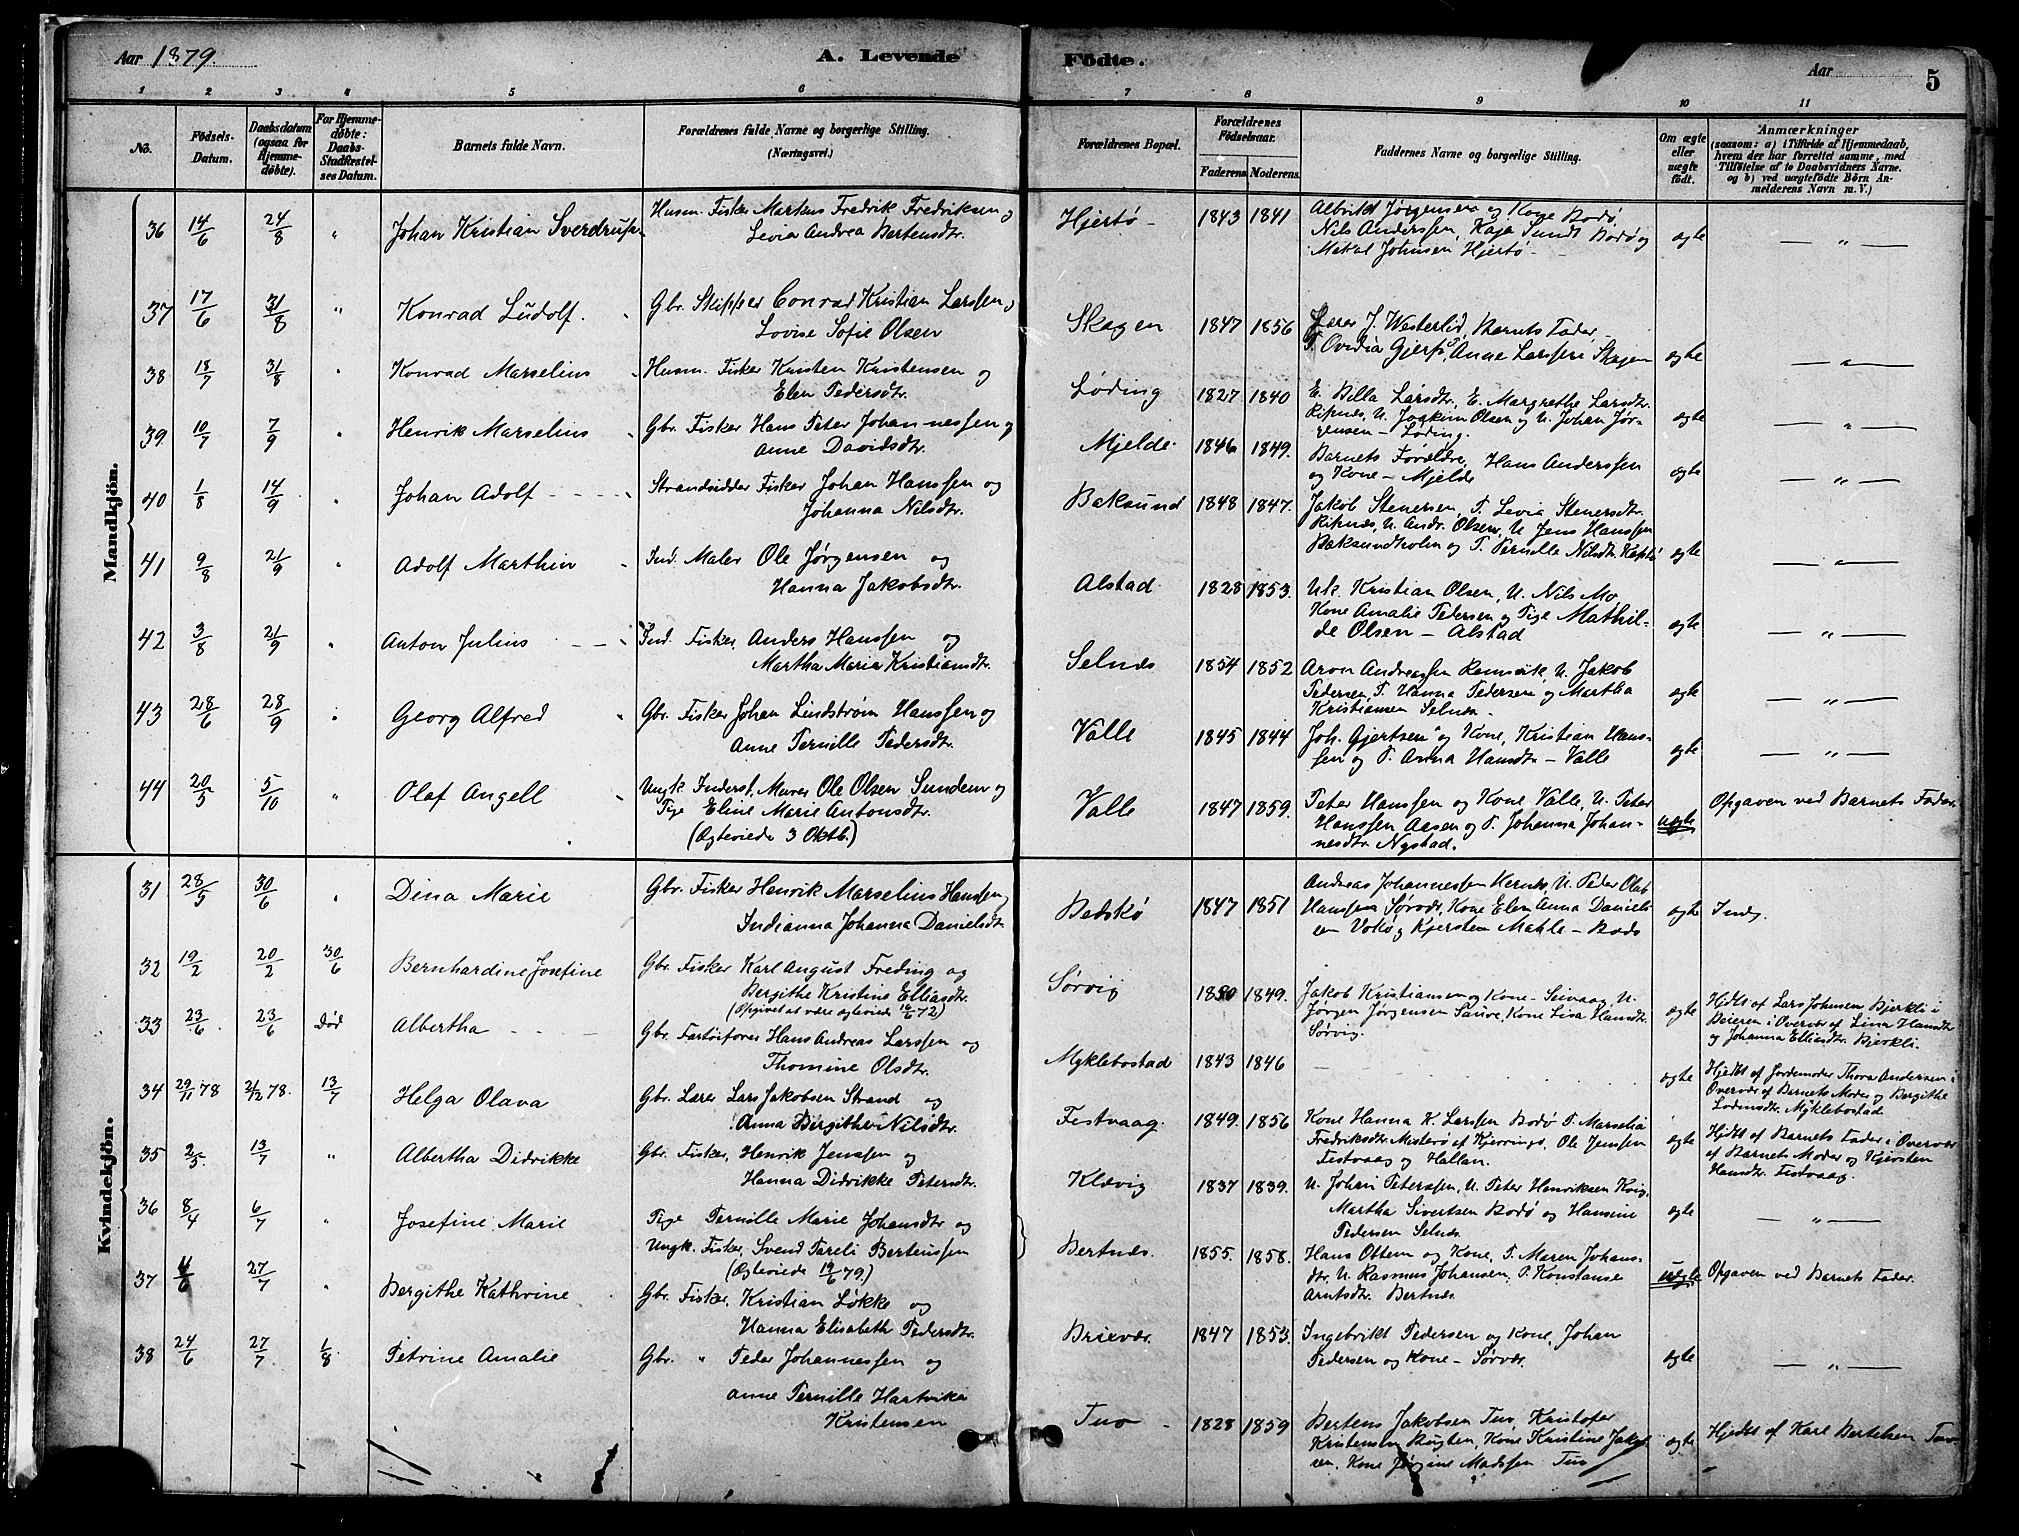 Aar 1879.
A. Levende
Födte.
Aar
5
1
2
3
4
5
6
7
8
9
10
11
No.
Födsels-
Datum.
Daabsdatum
(ogsaa for
Hjemme-
døbte).
For Hjemme-
døbte:
Daabs-
Stadfæstel-
ses Datum.
Barnets fulde Navn.
Forældrenes fulde Navne og borgerlige Stilling.
(Næringsvei.)
Forældrenes Bopæl.
Forældrenes
Födselsaar.
Faderens
Moderens.
Faddernes Navne og borgerlige Stilling.
Om ægte
eller
uægte
født.
Anmærkninger
(saasom: a) i Tilfælde af Hjemmedaab,
hvem der har forrettet samme, med
Tilföielse af to Daabsvidners Navne.
og b) ved uægtefødte Börn An-
melderens Navn m. V.)
Mandkjön.
36 14/6 24/8 " Johan Kristian Sverdrup
Husm. Fisker Markus Fredrik Fredriksen og
Levia Andrea Bertensdtr.
Hjertø - 1843 1841
Albrikt Jørgensen og Kone Bodø,
Nils Anderssen, Kaja Sundt Bodø og
Mekal Johnsen Hjertø -
ægte — " —
37 17/6 31/8 " Konrad Ludolf.
Gbr. Skipper Conrad Kristian Larssen og
Lovise Sofie Olsen
Skagen 1847 1856
Lærer J. Westerlid, Barnets Fader,
P. Ovidia Gjersø, Anne Larssen Skagen
ægte — " —
38 18/7 31/8 " Konrad Marselius
Husm. Fisker Kristen Kristensen og
Elen Pedersdtr.
Løding 1827 1840
E. Billa Larsdtr., E. Margrethe Larsdtr.
Ripnæs, U. Joakim Olsen og U. Johan Jør-
gensen - Løding.
ægte — " —
39 10/7 7/9 " Henrik Marselius
Gbr. Fisker Hans Peter Johannessen og
Anne Davidsdtr.
Mjelde 1846 1849.
Barnets Forældre, Hans Anderssen
og Kone - Mjelde
ægte — " —
40 1/8 14/9 " Johan Adolf
Strandsidder Fisker Johan Hanssen og
Johanna Nilsdtr.
Baksund 1848 1847.
Jakob Stenersen, P. Levia Stenersdtr.
Ripnæs, U. Andr. Olsen, U. Jens Hanssen
Baksundholm og P. Pernille Nilsdtr.
ægte — " —
41 9/8 21/9 " Adolf Marthin
Ind. Maler Ole Jørgensen og
Hanna Jakobsdtr.
Alstad 1828 1853.
Uk. Kristian Olsen, U. Nils Mo
Kone Amalie Pedersen og Pige Mathil-
de Olsen - Alstad
ægte — " —
42 3/8 21/9 " Anton Julius
Ind. Fisker, Anders Hanssen og
Martha Marie Kristiansdtr.
Selnæs 1854 1852
Aron Andreassen Remsvik, U. Jakob
Pedersen, P. Hanna Pedersen og Martha
Kristiansen Selnæs -
ægte — " —
43 28/6 28/9 " Georg Alfred
Gbr. Fisker Johan Lindstrøm Hanssen og
Anne Pernille Pedersdtr.
Valle 1845 1844
Joh. Gjertsen og Kone, Kristian Hans-
sen og P. Anna Hansdtr - Valle
ægte — " —
44 20/5 5/10 " Olaf Angell
Ungk. Inderst, Murer Ole Olsen Sundem og
Pige Eline Marie Antonsdtr.
(Ægteviede 3 Oktb.)
Valle 1847 1859.
Peter Hanssen og Kone Valle, U. Peter
Hanssen Aasen og P. Johanna Johan-
nesdtr. Nystad.
uægte Opgaven ved Barnets Fader.
Kvindekjön.
31 28/5 30/6 " Dina Marie
Gbr. Fisker Henrik Marselius Hanssen og
Indianna Johanna Danielsdtr
Bedskø 1847 1851
Andreas Johannessen Kernes, U. Peder Olai
Hanssen Sørvær, Kone Elen Anna Daniel-
sen Vokø og Kjersten Mahle - Bodø
ægte Indg.
32 19/2 20/2 30/6 Bernhardine Josefine
Gbr. Fisker Karl August Freding og
Bergithe Kristine Elliasdtr.
(Opgivet at være ægteviede 16/6 72)
Sørvig 1850 1849.
Jakob Kristiansen og Kone - Seivaag, U.
Jørgen Jørgensen Saure, Kone Lisa Hansdtr.
Sørvig.
ægte
Hjdt af Lars Johnsen Bjerkli i
Beieren i Overvær af Lina Hansdtr
og Johanna Elliasdtr. Bjerkli.
33 23/6 23/6 Død Albertha
Gbr. Fartøifører Hans Andreas Larssen og
Thomine Olsdtr.
Myklebostad 1843 1846
ægte
Hjedt af Jordemoder Thora Andersen i
Overvær af Barnets Moder og Bergithe
Lodensdtr. Myklebostad.
34 29/11 78 2/12 78. 13/7 Helga Olava
Gbr. Lærer Lars Jakobsen Strand og
Anna Birgithe Nilsdtr.
Festvaag. 1849. 1856
Kone Hanna K. Larssen Bodø P. Marselia
Fredriksdtr. Misterø af Kjerringø, Ole Jenssen
Festvaag og Hallan.
ægte
Hjdt af Barnets Fader i Overvær
af Barnets Moder og Kjersten
Hansdtr. Festvaag.
35 2/5. 13/7 " Albertha Didrikke
Gbr. Fisker, Henrik Jenssen og
Hanna Didrikke Petersdtr.
Klævig 1837 1839.
U. Johan Peterssen, U. Peter Henriksen Kvig,
Martha Sivertsen Bodø og Hansine
Pedersen Selnæs
ægte — " —
36 8/4 6/7 " Josefine Marie
Pige Pernille Marie Johansdtr og
Ungk. Fisker, Svend Pareli Bertenssen
(Ægteviede 19/6 79.)
Bertnæs. 1855. 1858.
Hans Ottem og Kone, P. Maren Johans-
dtr. U. Rasmus Johansen, P. Konstanse
Arntsdtr. Bertnæs.
uægte Opgaven ved Barnets Fader.
37 4/6 27/7 " Bergithe Kathrine
Gbr. Fisker, Kristian Løkke og
Hanna Elisabeth Pedersdtr.
Brixvær. 1847 1853.
Ingebrikt Pedersen og Kone, Johan
Pedersen og Kone - Sørvær.
ægte — " —
38 24/6 27/7 1/8 Petrine Amalie
Gbr. " Peder Johannessen og
Anne Pernille Hartvika
Kristensen
Tuv - 1828 1859
Bertens Jakobsen Tuv, Kristofer
Kristensen Bugten, Kone Kristine Jakob-
sen, Kone Jørgine Madssen Tuv
ægte Hjedt af Karl Bertelsen Tuv